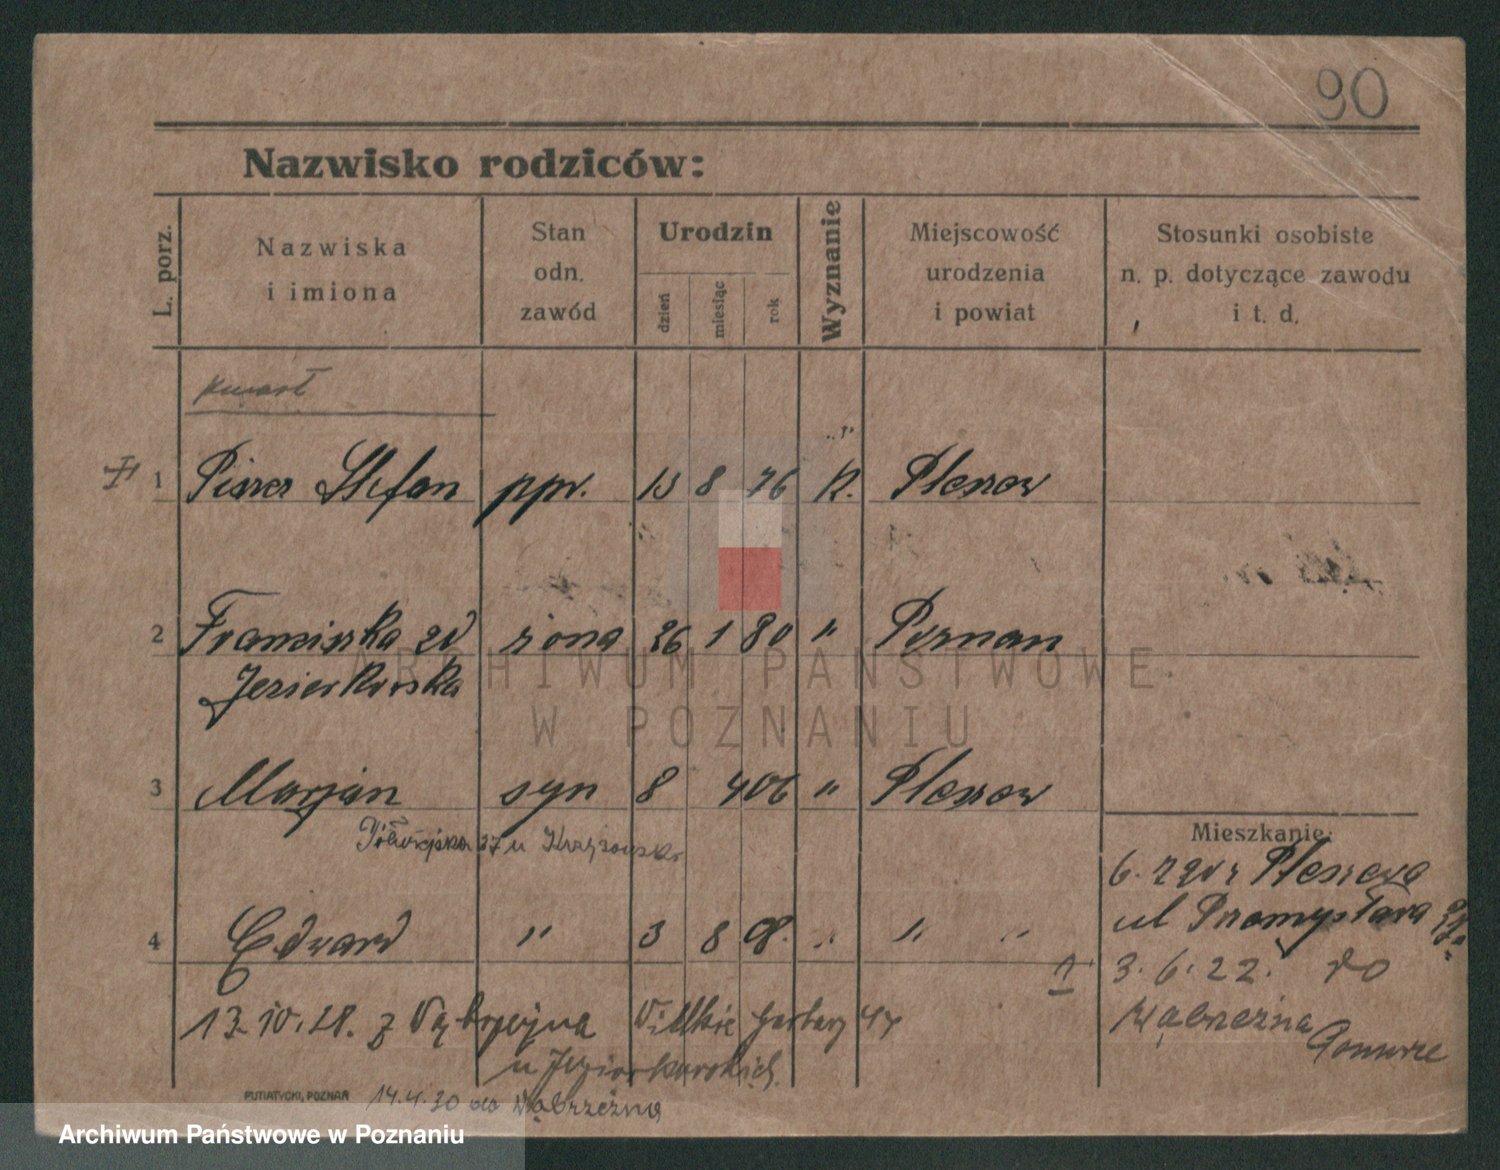 90
Nazwisko rodziców:
L. porz.
Nazwiska
i imiona
Stan
odn.
zawód
Urodzin
dzień
miesiąc
rok
Wyznanie
Miejscowość
urodzenia
i powiat
Stosunki osobiste
n. p. dotyczące zawodu
i t. d.
1 Stefan ppor. 8 76 R. Pleszew
2 Franciszka zd żona 26 1 80 " Poznan
Jezierkowska
3 Marjan syn 8 4 06 " Pleszew
37 u
Mieszkanie:
6. Pleszewa
ul Przemysława
4 Edward " 3 8 08. " " "
3. 6. 22. do
Wąbrzeźna
Pomorze
13. 10. 28. z Wielkie Garbary 47
u
PUTIATYCKI, POZNAŃ
14.4.30 do Wąbrzeźna
ARCHIWUM PAŃSTWOWE
W POZNANIU
Archiwum Państwowe w Poznaniu